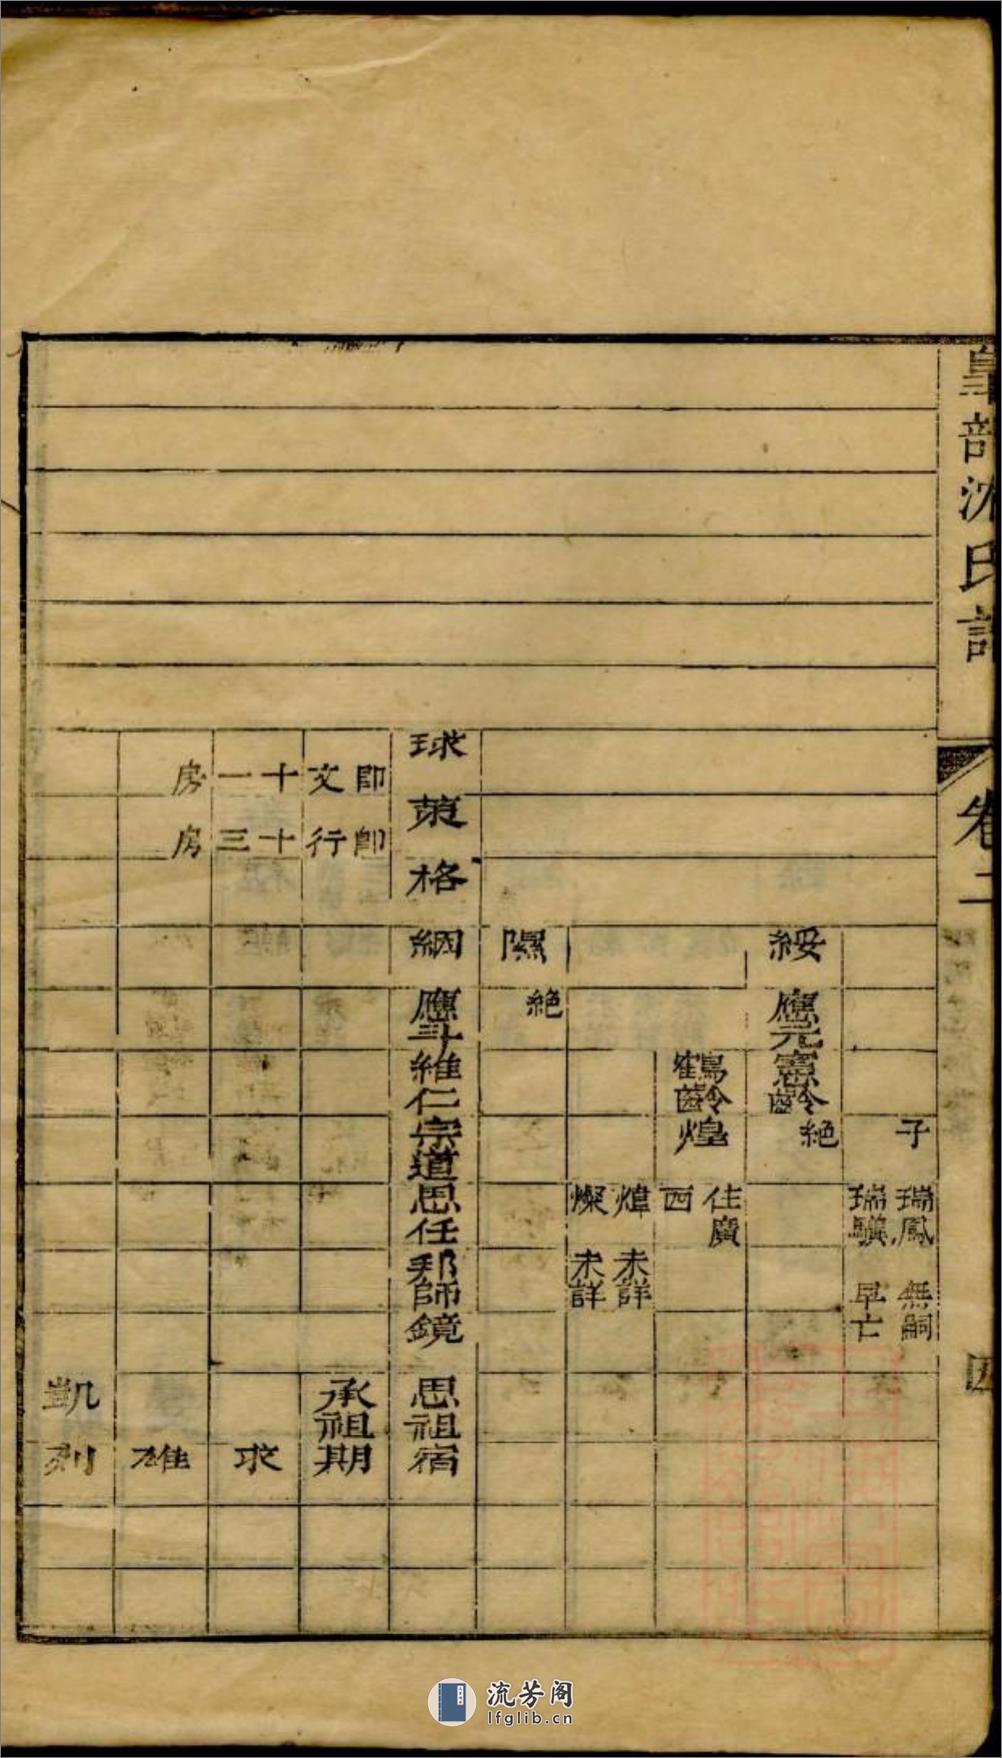 皇部沈氏譜
卷二
四
子
瑞鳳 無嗣
瑞騏 早亡
綏
應元
憲齡
絕
鶴齡
煌
住廣
西
煒 未詳
燦 未詳
隰
絕
球
策
格
絪
應斗
維仁
宗道
思任
邦師
鏡
思祖
宿
即文十一房
即行十三房
承祖
期
求
雄
凱
列
流芳阁
lfglib.cn